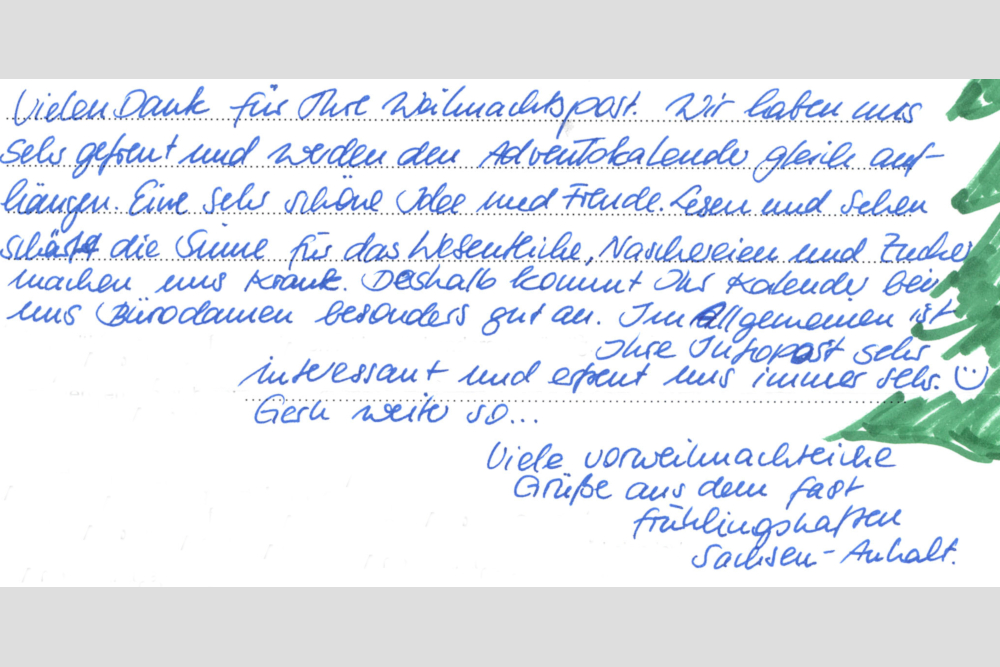 Vielen Dank für Ihre Weihnachtspost. Wir haben uns
sehr gefreut und werden den Adventskalender gleich auf-
hängen. Eine sehr schöne Idee und Freude. Lesen und Sehen
schärft die Sinne für das Wesentliche, Naschereien und Zucker
machen uns krank. Deshalb kommt Ihr Kalender bei
uns Bürodamen besonders gut an. Im Allgemeinen ist
Ihre Infopost sehr
interessant und erfreut uns immer sehr. ☺
Gern weiter so...
Viele vorweihnachtliche
Grüße aus dem fast
frühlingshaften
Sachsen-Anhalt.